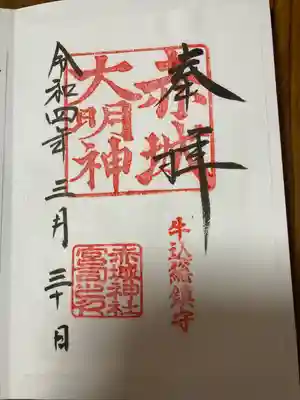 奉拝
赤城
大明神
牛込總鎮守
赤城神社
宮司之印
令和四年三月三十日